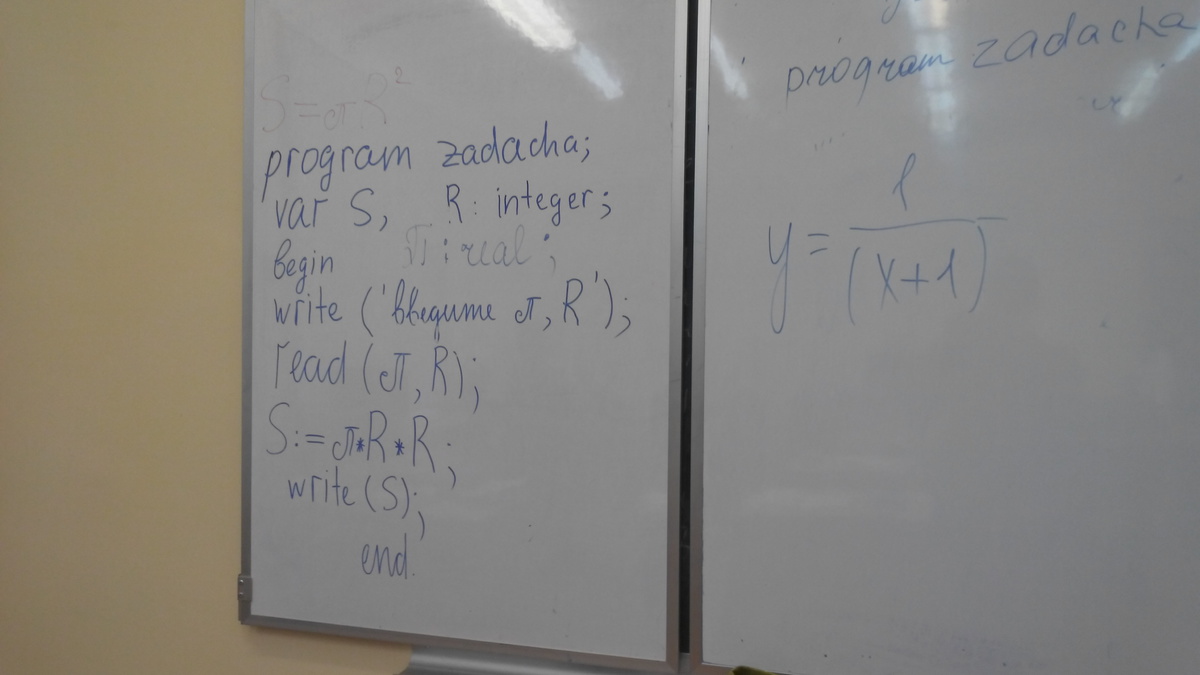 S=πR²
program zadacha;
var S, R: integer;
begin π: real;
write ('введите π, R');
read (π, R);
S:=π*R*R;
write (S);
end.
program zadacha
y = 1/(x+1)